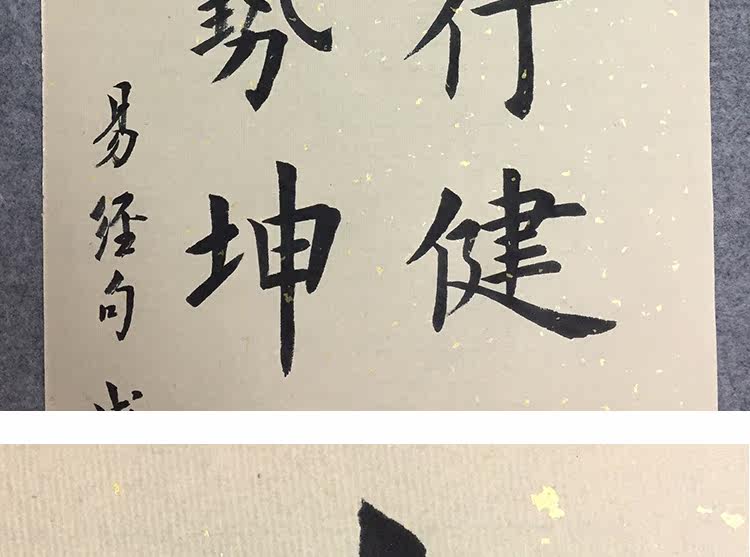 行健
勢坤
易经句